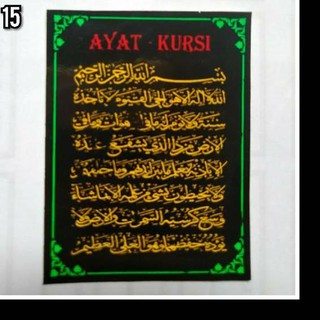 15
AYAT - KURSI
بسم الله الرحمن الرحيم
الله لا اله الا هو الحي القيوم لا تأخذه
سنة ولا نوم له ما في السموات وما في
الارض من ذا الذي يشفع عنده
الا باذنه يعلم ما بين ايديهم وما خلفهم
ولا يحيطون بشيء من علمه الا بما شاء
وسع كرسيه السموات والارض ولا
يؤده حفظهما وهو العلي العظيم